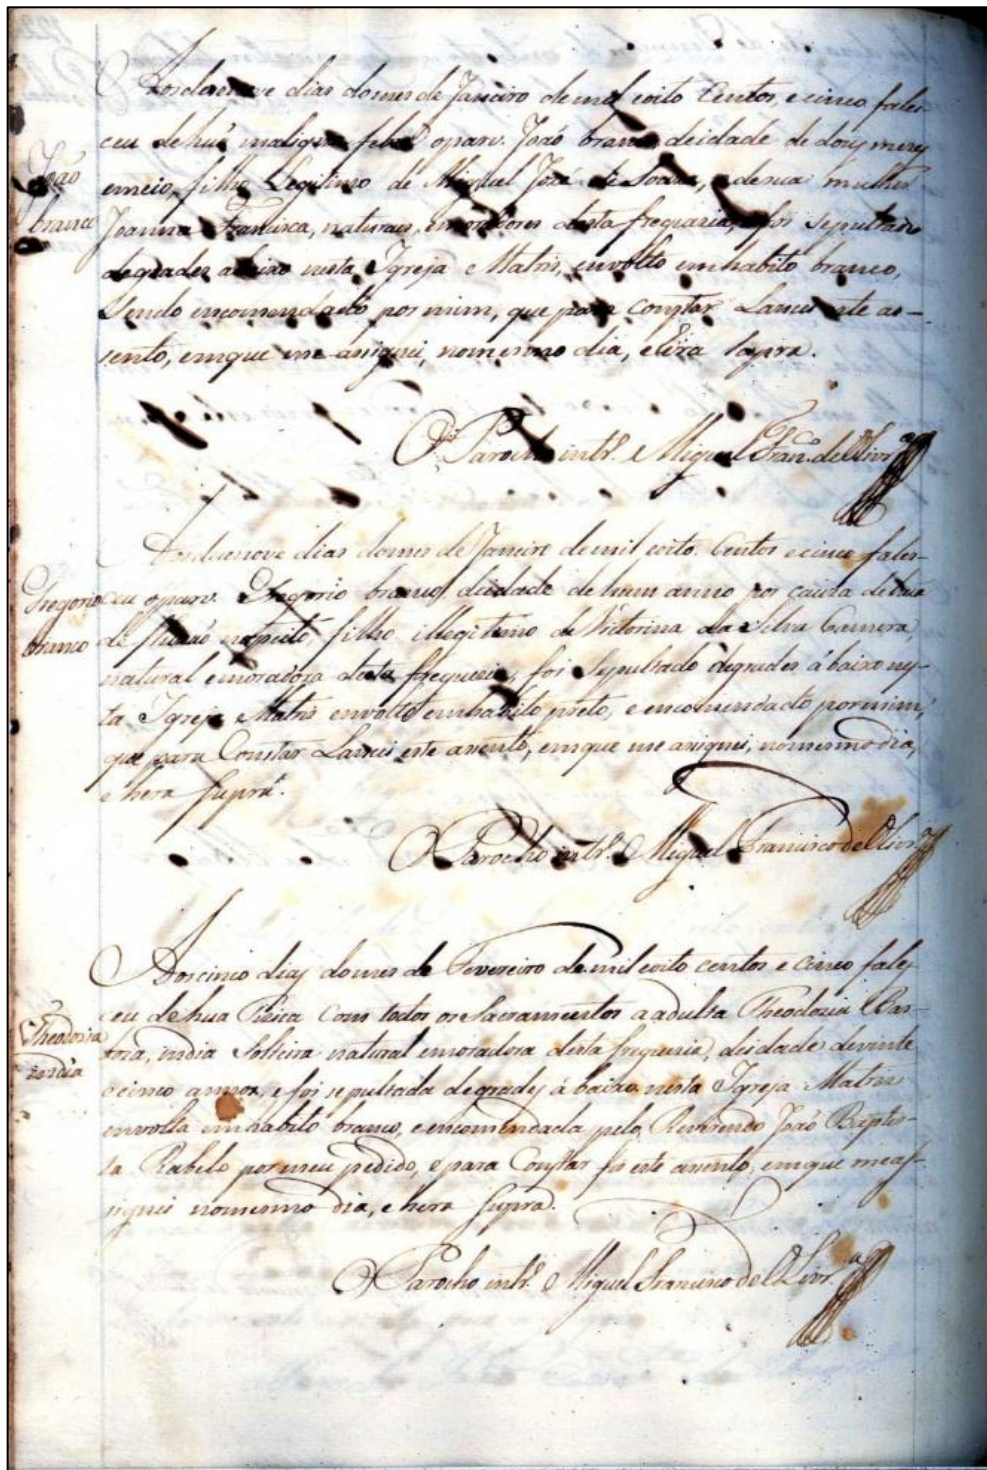 Aos desanove dias do mes de Janeiro de mil oito Centos, e cinco fales-
João
branco
ceu de huã maligna febre o parv. João branco, de idade de doiz mezes
e meio, filho Legitimo de Miguel José de Sousa, e de sua mulher
Joanna Francisca, naturais, e moradores desta freguezia, e foi Sepultado
de grades abaixo nesta Igreja Matris, envolto em habito branco,
Sendo encomendado por mim, que para Constar Lancei este as-
sento, em que me assignei, no mesmo dia, e Era Supra.
O Parocho intr.º Miguel Fran.co de Olivr.a
Aos desenove dias do mes de Janeiro de mil oito Centos e cinco fales-
Gregorio
branco
ceu o parv. Gregorio branco, de idade de hum anno por cauza de hua
filho illegitimo de Victorina da Silva Camera,
natural e moradora desta freguezia, foi Sepultado de grades á baixo nes-
ta Igreja Matris envolto em habito preto, e encomendado por mim,
que para Constar Lancei este assento, em que me asignei, no mesmo dia,
e hera Supra.
O Parocho intr.º Miguel Francisco de Olivr.a
Aos cinco dias do mes de Fevereiro de mil oito centos e cinco fales-
Theodozia
india
ceu de hua Tisica Com todos os Sacramentos a adulta Theodozia Bar-
boza, india Solteira natural e moradora desta freguezia, de idade de vinte
e cinco annos, e foi sepultada de grades á baixo nesta Igreja Matris
envolta em habito branco, e encomendada pelo Reverendo João Baptis-
ta Rabelo por meu pedido, e para Constar fis este assento, em que me as-
signei no mesmo dia, e hera Supra.
O Parocho intr.º Miguel Francisco de Olivr.a